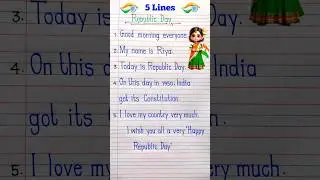 5 Lines
Republic Day
1. Good morning everyone.
2. My name is Riya.
3. Today is Republic Day.
4. On this day in 1950, India
got its Constitution.
5. I love my country very much.
I wish you all a very "Happy
Republic Day"
3. Today is
On this
got its
5. I love m
Day.
India
n.
much.